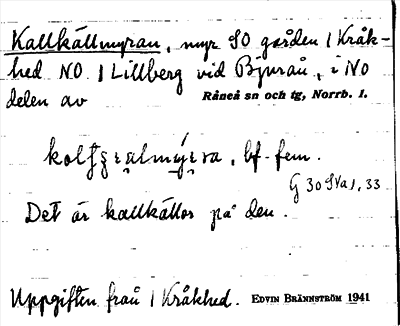 Kallkällmyran, myr SO gården 1 Kråk-
hed NO 1 Lillberg vid Bjuraå, i NO
delen av Råneå sn och tg, Norrb. l.
bf. fem.
G 30 SVa 1, 33
Det är kallkällor på den.
Uppgiften från 1 Kråkhed. EDVIN BRÄNNSTRÖM 1941